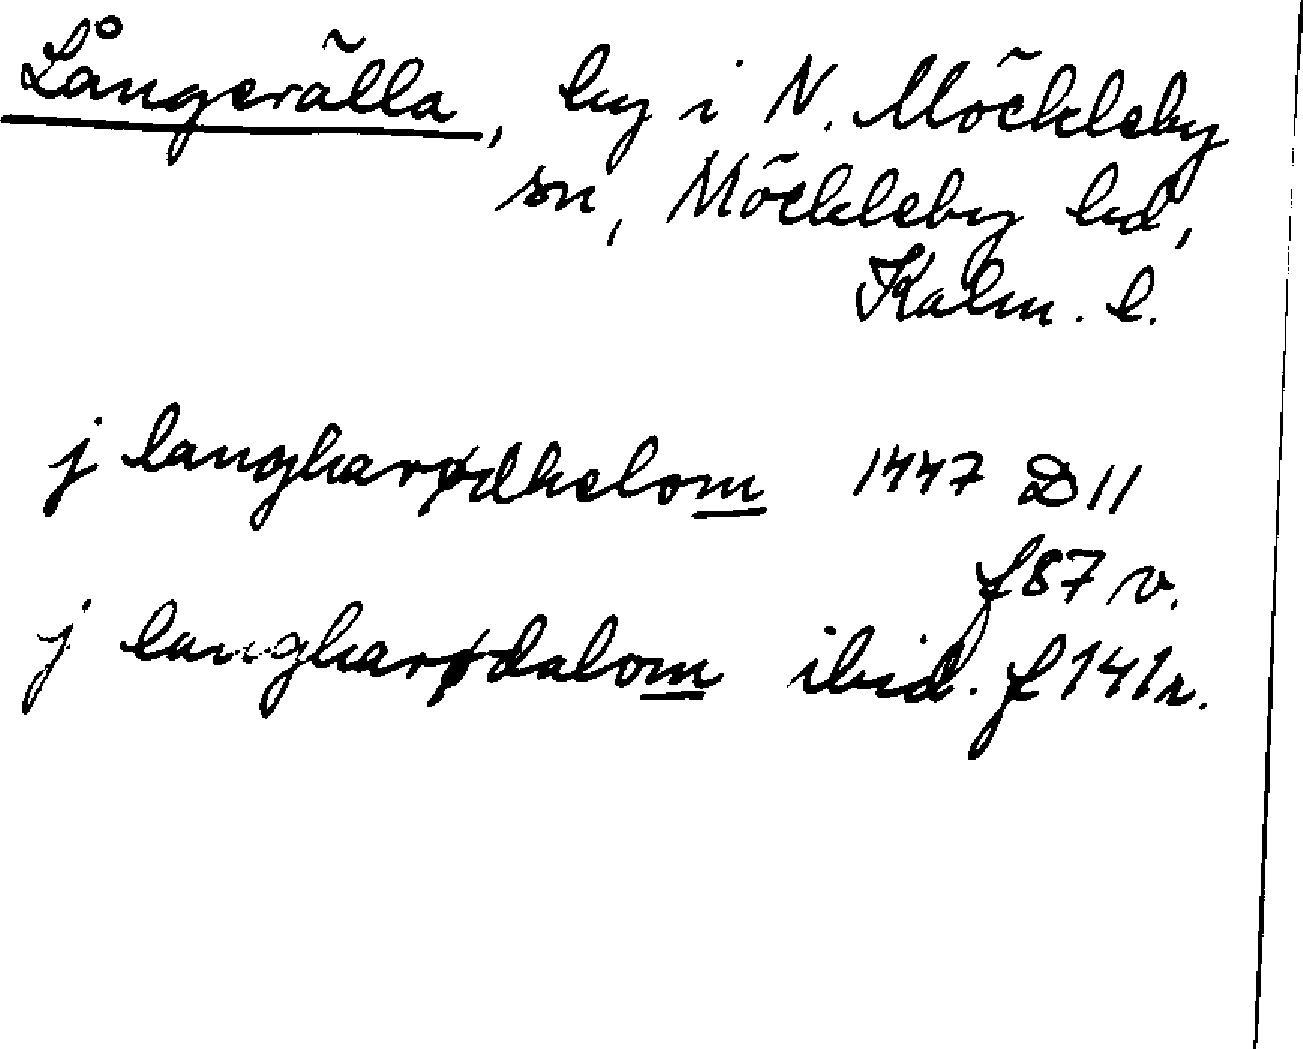 Långerälla, by i N. Möckleby
sn, Möckleby hd,
Kalm. l.
j langharødhelom 1447 D 11
f 87 v.
j langharødalom ibid. f 141 r.